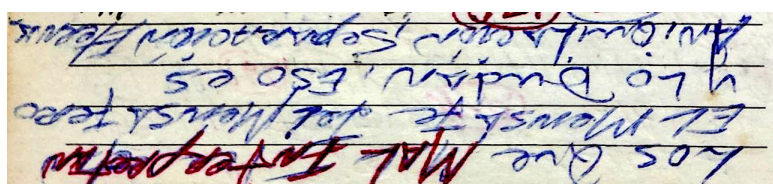 Los Que MAL INTerpretan
EL MensaJe del MensaJero
y Lo Dudan, ESO es
Aniquilación, Separación Eterna